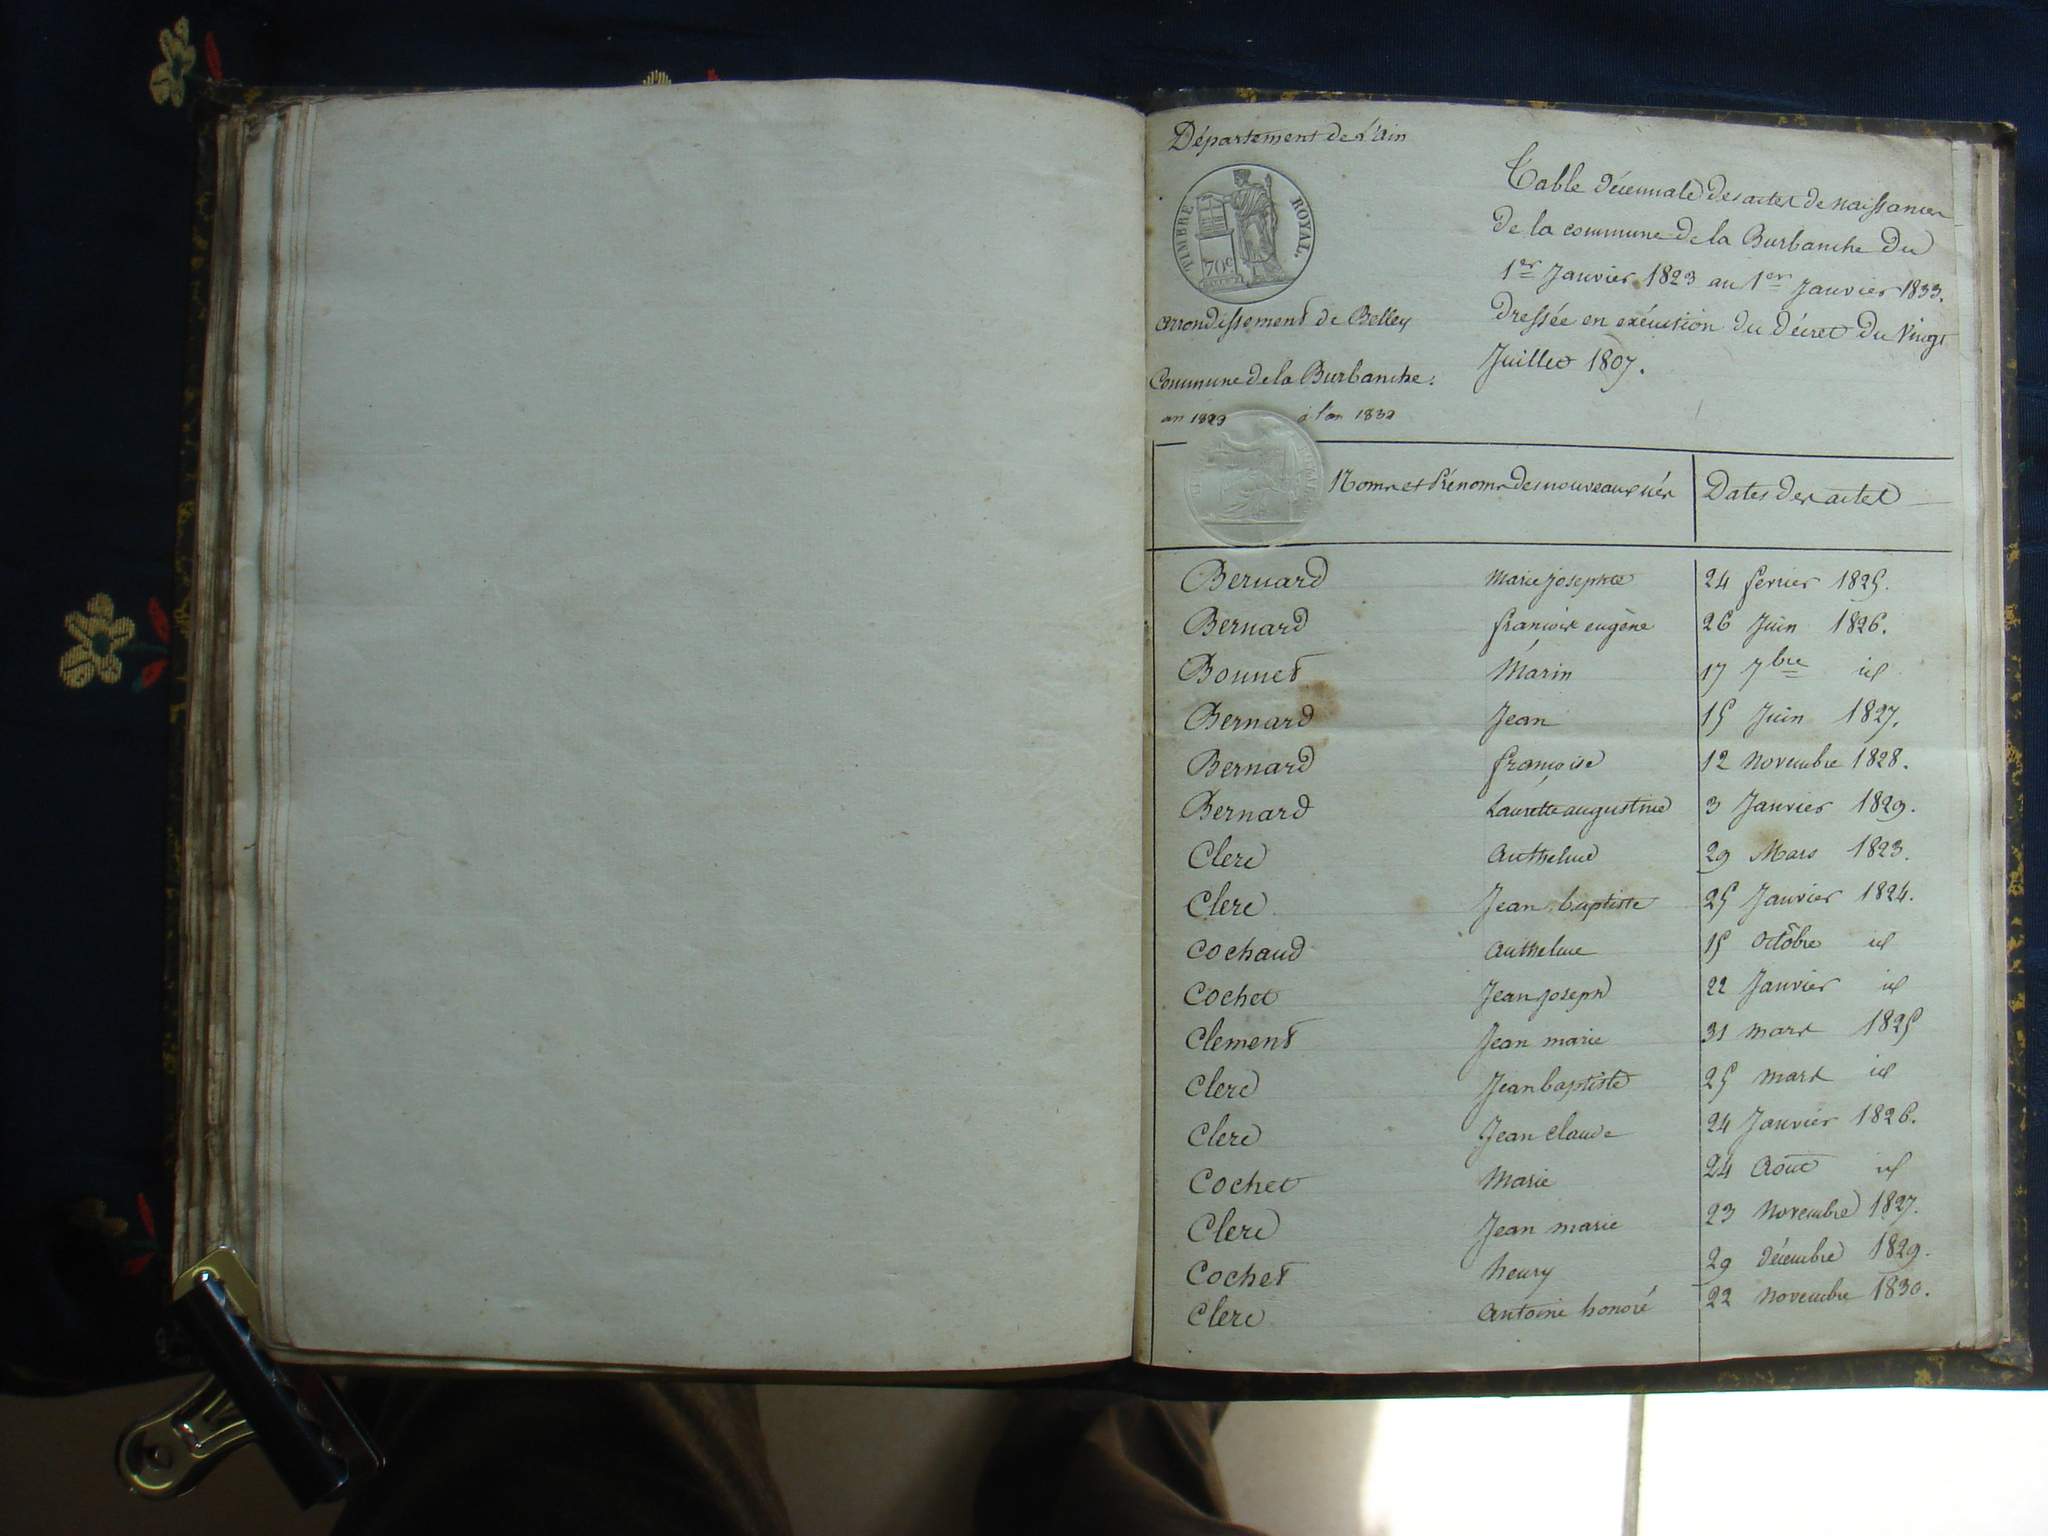 Département de l'Ain
TIMBRE ROYAL.
70c
Table décennale des actes de naissances
de la commune de la Burbanche du
1er Janvier 1823 au 1er Janvier 1833.
dressée en exécution du décret du Vingt
Juillet 1807.
arrondissement de Belley
Commune de la Burbanche.
an 1823 à l'an 1832
Noms et Prénoms des nouveaux nés Dates des actes
Bernard Marie josephte 24 fevrier 1825.
Bernard françois eugène 26 Juin 1826.
Bonnet Marin 17 7bre id
Bernard Jean 15 Juin 1827.
Bernard françoise 12 Novembre 1828.
Bernard Laurette augustine 3 Janvier 1829.
Clerc anthelme 29 Mars 1823.
Clerc Jean baptiste 25 Janvier 1824.
Cochaud anthelme 15 octobre id
Cochet Jean joseph 22 Janvier id
Clement Jean marie 31 mars 1825
Clerc Jean baptiste 25 mars id
Clerc Jean claude 24 Janvier 1826.
Cochet Marie 24 Aout id
Clerc Jean marie 23 Novembre 1827.
Cochet henry 29 décembre 1829.
Clerc antoine honoré 22 Novembre 1830.